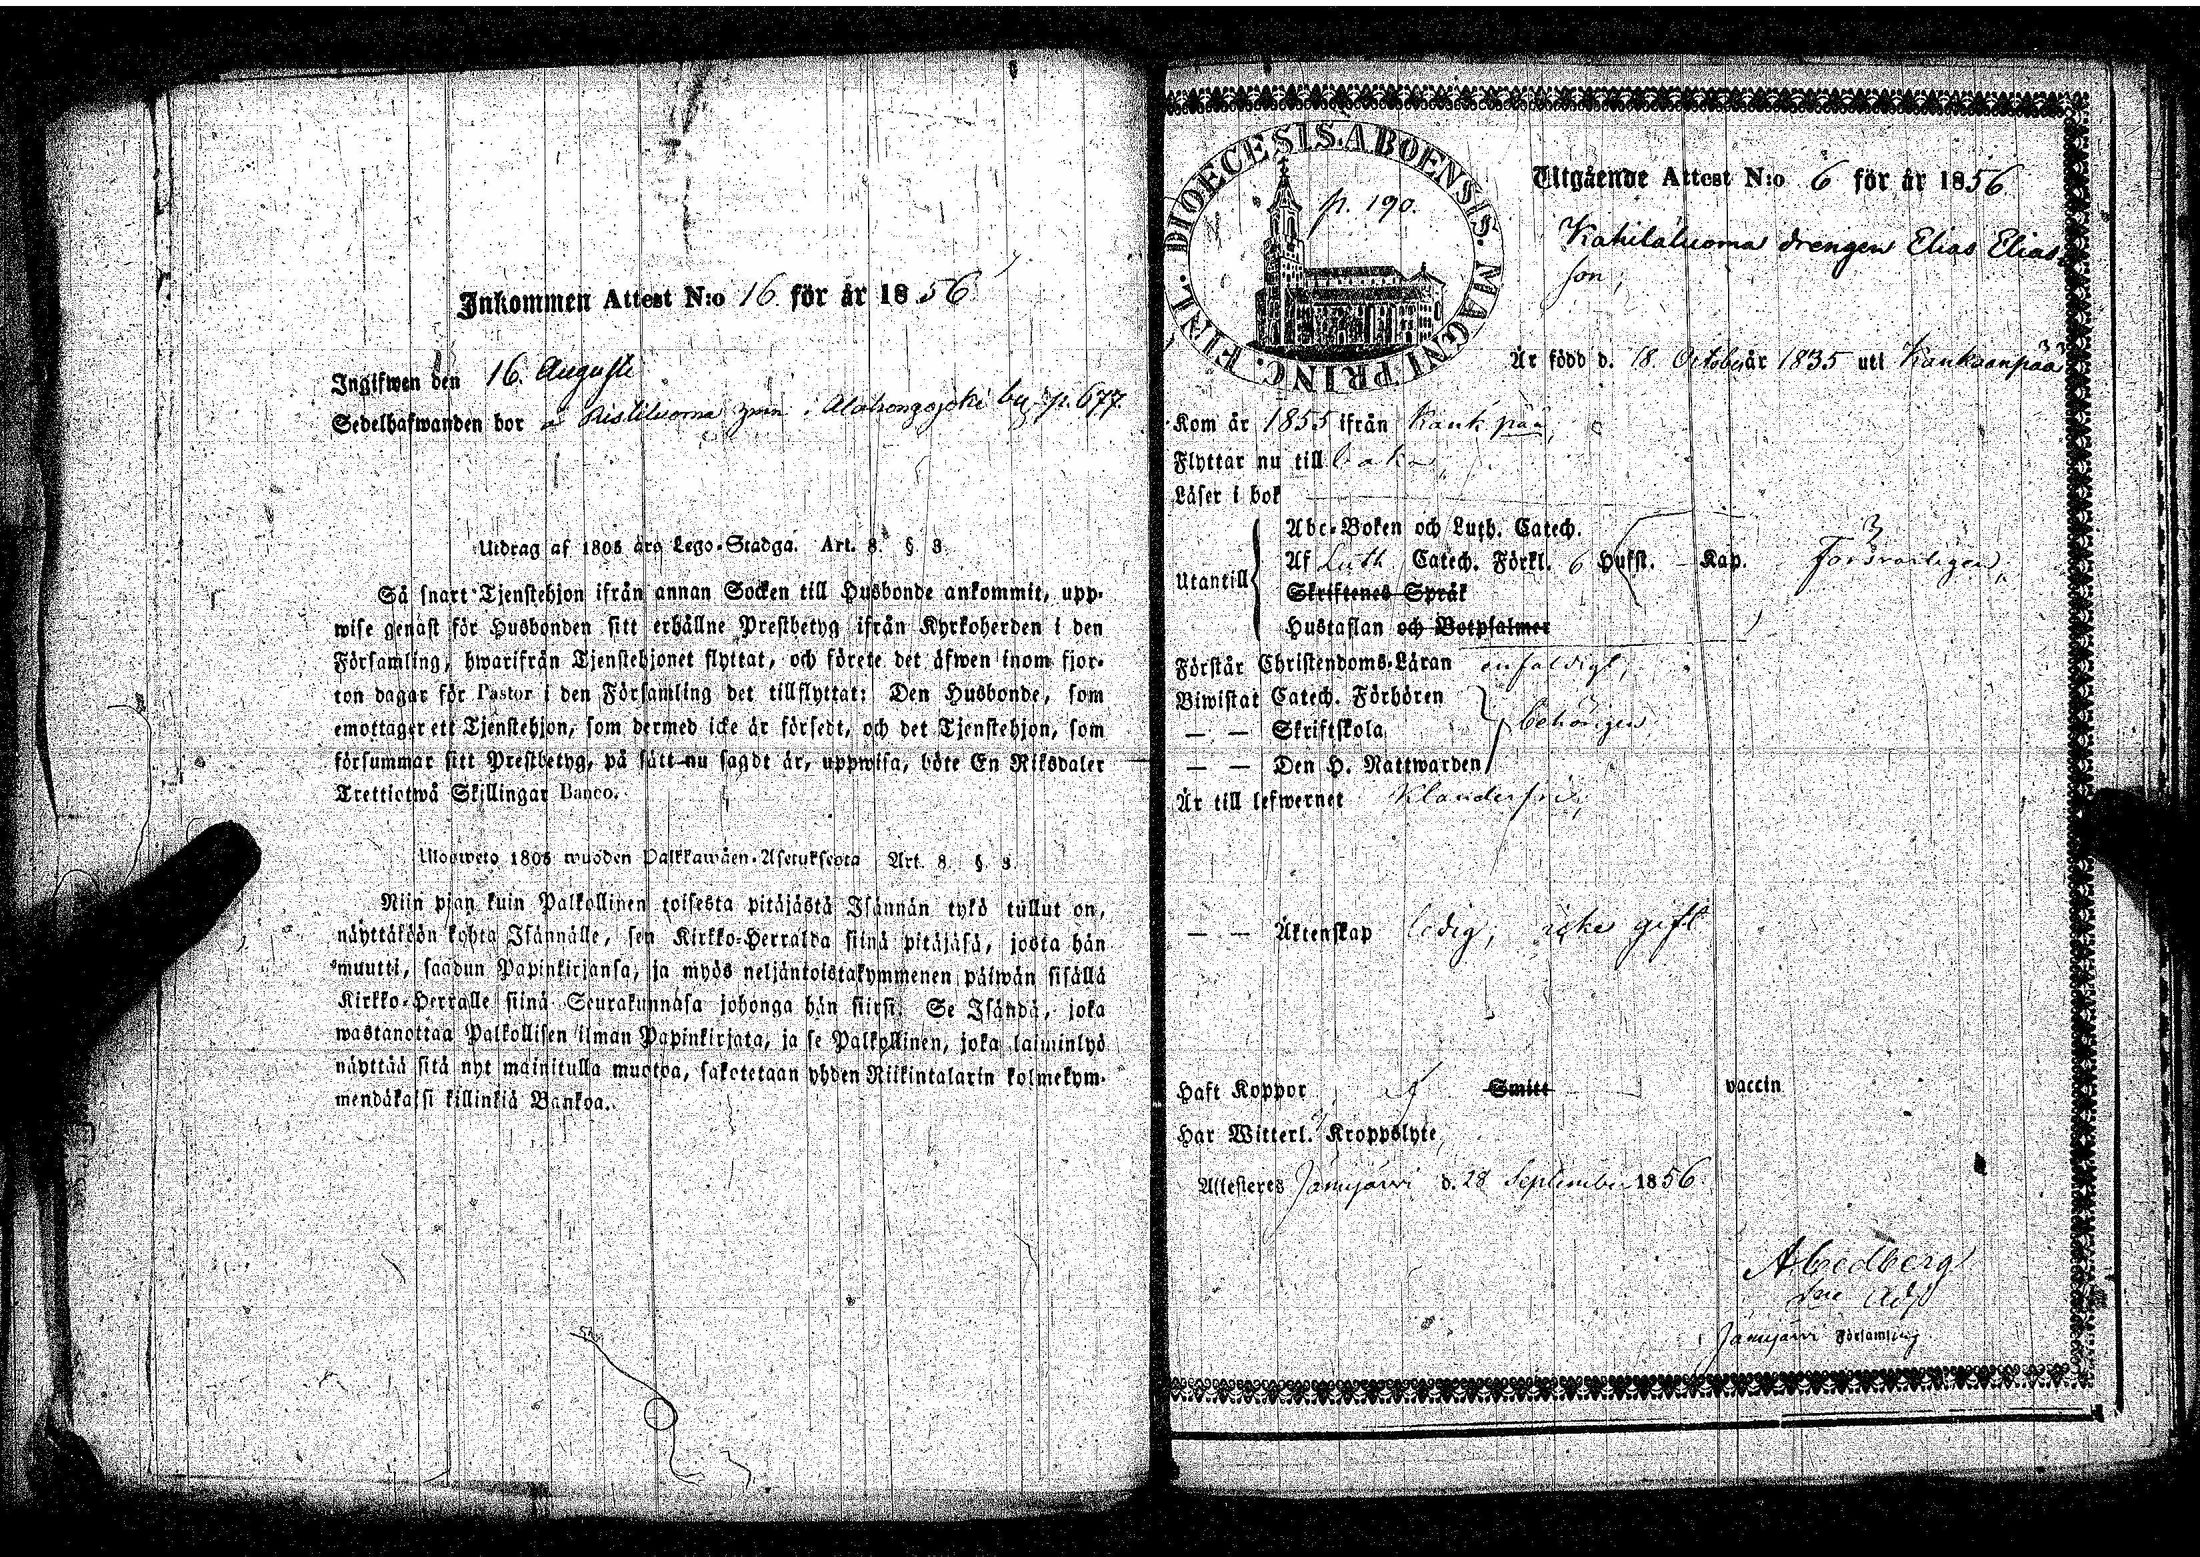 Inkommen Attest N:o 16 för år 1856
Ingifwen den 16. Augusti
Sedelhafwanden bor å Ristiluoma i Alahongojoki by p. 677.
Utdrag af 1805 års Lego-Stadga. Art. 8. § 3.
Så snart Tjenstehjon ifrån annan Socken till Husbonde ankommit, upp-
wise genast för Husbonden sitt erhållne Prestbetyg ifrån Kyrkoherden i den
Församling, hwarifrån Tjenstehjonet flyttat, och förete det äfwen inom fjor-
ton dagar för Pastor i den Församling det tillflyttat: Den Husbonde, som
emottager ett Tjenstehjon, som dermed icke är försedt, och det Tjenstehjon, som
försummar sitt Prestbetyg, på sätt nu sagdt är, uppwisa, böte En Riksdaler
Trettiotwå Skillingar Banco.
Ulosweto 1805 wuoden Palkkawäen-Asetuksesta Art. 8 § 3
Niin pjan kuin Palkollinen toisesta pitäjästä Isännän tykö tullut on,
näyttäköön kohta Isännälle, sen Kirkko-Herralda siinä pitäjäsä, josta hän
muutti, saadun Papinkirjansa, ja myös neljäntoistakymmenen päiwän sisällä
Kirkko-Herralle siinä Seurakunnasa johonga hän siirsi. Se Isändä, joka
wastanottaa Palkollisen ilman Papinkirjata, ja se Palkollinen, joka laiminlyö
näyttää sitä nyt mainitulla muotoa, sakotetaan yhden Riikintalarin kolmekym-
mendäkaksi killinkiä Bankoa.
DIOECESIS. ABOENSIS. MAGNI PRINC. FINL.
p. 190.
Utgående Attest N:o 6 för år 1856
Kahilaluoma drengen Elias Elias-
son,
Är född d. 18. October år 1835 uti Kankaanpää
Kom år 1855 ifrån Kank'pää,
Flyttar nu till baka,
Läser i bok
Utantill
Abc-Boken och Luth. Catech.
Af Luth Catech. Förkl. 6 Hufst. Kap. Försvarligen,
Skriftenes Språk
Hustaflan och Botpsalmer
Förstår Christendoms-Läran enfaldigt,
Biwistat Catech. Förhören
— — Skriftskola behörigen
— — Den H. Nattwarden
Är till lefwernet Klanderfri,
— — Äktenskap ledig, icke gift
Haft Koppor Smitt vaccin
Har Witterl. Kroppslyte
Attesteres Jämijärvi d. 28 September 1856
Jämijärvi Församling